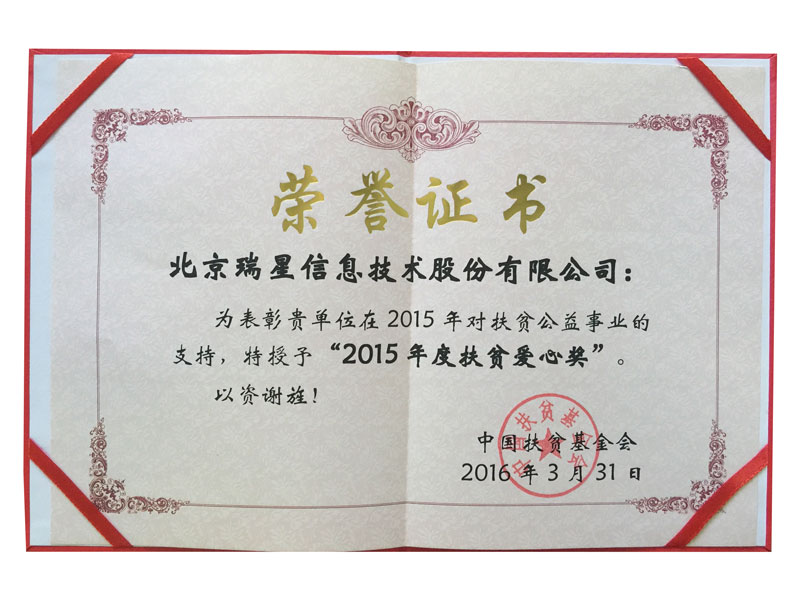 荣誉证书
北京瑞星信息技术股份有限公司：
为表彰贵单位在2015年对扶贫公益事业的
支持，特授予“2015年度扶贫爱心奖”。
以资谢旌！
中国扶贫基金会
中国扶贫基金会
2016年3月31日